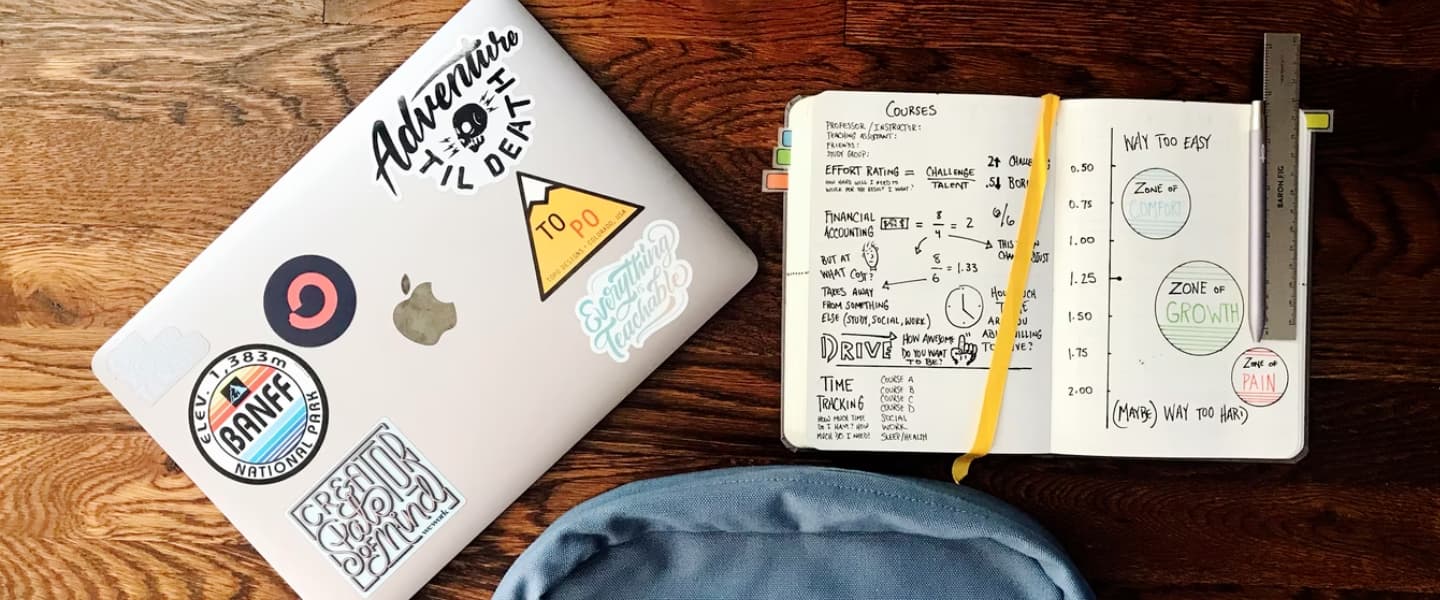 Adventure
'TIL DEATH
TO PO
TOPO DESIGNS • COLORADO, USA
Everything
is
Teachable
ELEV. 1,383m
BANFF
NATIONAL PARK
CREATOR
State
OF Mind
wework
COURSES
PROFESSOR / INSTRUCTOR:
TEACHING ASSISTANT:
FRIENDS:
STUDY GROUP:
EFFORT RATING = CHALLENGE
TALENT
HOW HARD WILL I NEED TO
WORK FOR THE RESULT I WANT?
2↑
.5↓
FINANCIAL
ACCOUNTING
= 8/4 = 2
6/6
THIS
8/6 = 1.33
BUT AT
WHAT COST?
TAKES AWAY
FROM SOMETHING
ELSE (STUDY, SOCIAL, WORK)
DRIVE
HOW AWESOME
DO YOU WANT
TO BE?
TIME
TRACKING
HOW MUCH TIME
DO I HAVE? HOW
MUCH DO I NEED?
COURSE A
COURSE B
COURSE C
COURSE D
SOCIAL
WORK
SLEEP/HEALTH
WAY TOO EASY
0.50
0.75
1.00
1.25
1.50
1.75
2.00
ZONE OF
COMFORT
ZONE OF
GROWTH
ZONE OF
PAIN
(MAYBE) WAY TOO HARD
BARON FIG